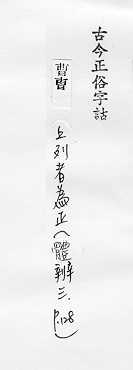 古今正俗字詁
上列者為正(體辨三.P.128)